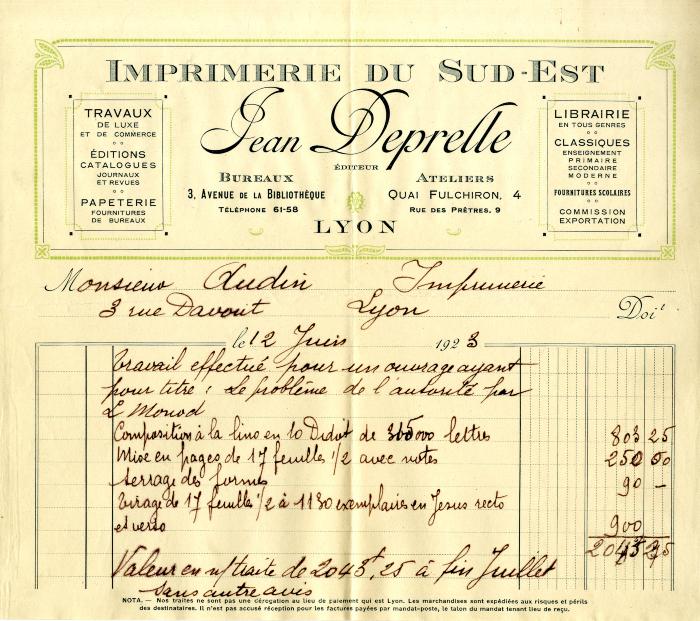 IMPRIMERIE DU SUD-EST
Jean Deprelle
ÉDITEUR
TRAVAUX
DE LUXE
ET DE COMMERCE
ÉDITIONS
CATALOGUES
JOURNAUX
ET REVUES
PAPETERIE
FOURNITURES
DE BUREAUX
BUREAUX
3, AVENUE DE LA BIBLIOTHÈQUE
TÉLÉPHONE 61-58
ATELIERS
QUAI FULCHIRON, 4
RUE DES PRÊTRES, 9
LYON
LIBRAIRIE
EN TOUS GENRES
CLASSIQUES
ENSEIGNEMENT
PRIMAIRE
SECONDAIRE
MODERNE
FOURNITURES SCOLAIRES
COMMISSION
EXPORTATION
Monsieur Audin Imprimerie
3 rue Davout Lyon Doit
le 12 Juin 1923
travail effectué pour un ouvrage ayant
pour titre : Le problème de l'autorité par
L Monod
Composition à la lino en 10 Didot de lettres 803 25
Mise en pages de 17 feuilles 1/2 avec notes 250
Serrage des formes 90 -
Tirage de 17 feuilles 1/2 à 1130 exemplaires en Jesus recto
et verso 900
2043 25
Valeur en n/traite de 2043f,25 à fin Juillet
sans autre avis
NOTA. — Nos traites ne sont pas une dérogation au lieu de paiement qui est Lyon. Les marchandises sont expédiées aux risques et périls
des destinataires. Il n'est pas accusé réception pour les factures payées par mandat-poste, le talon du mandat tenant lieu de reçu.